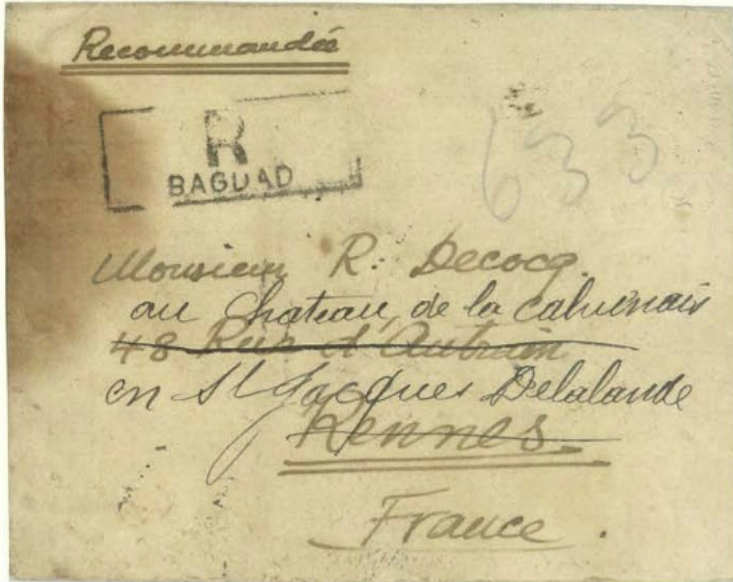 Recommandée
R
BAGDAD
633
Monsieur R. Decocq.
au Chateau de la
48 Rue d'Antrain
en St Jacques Delalande
Rennes
France.